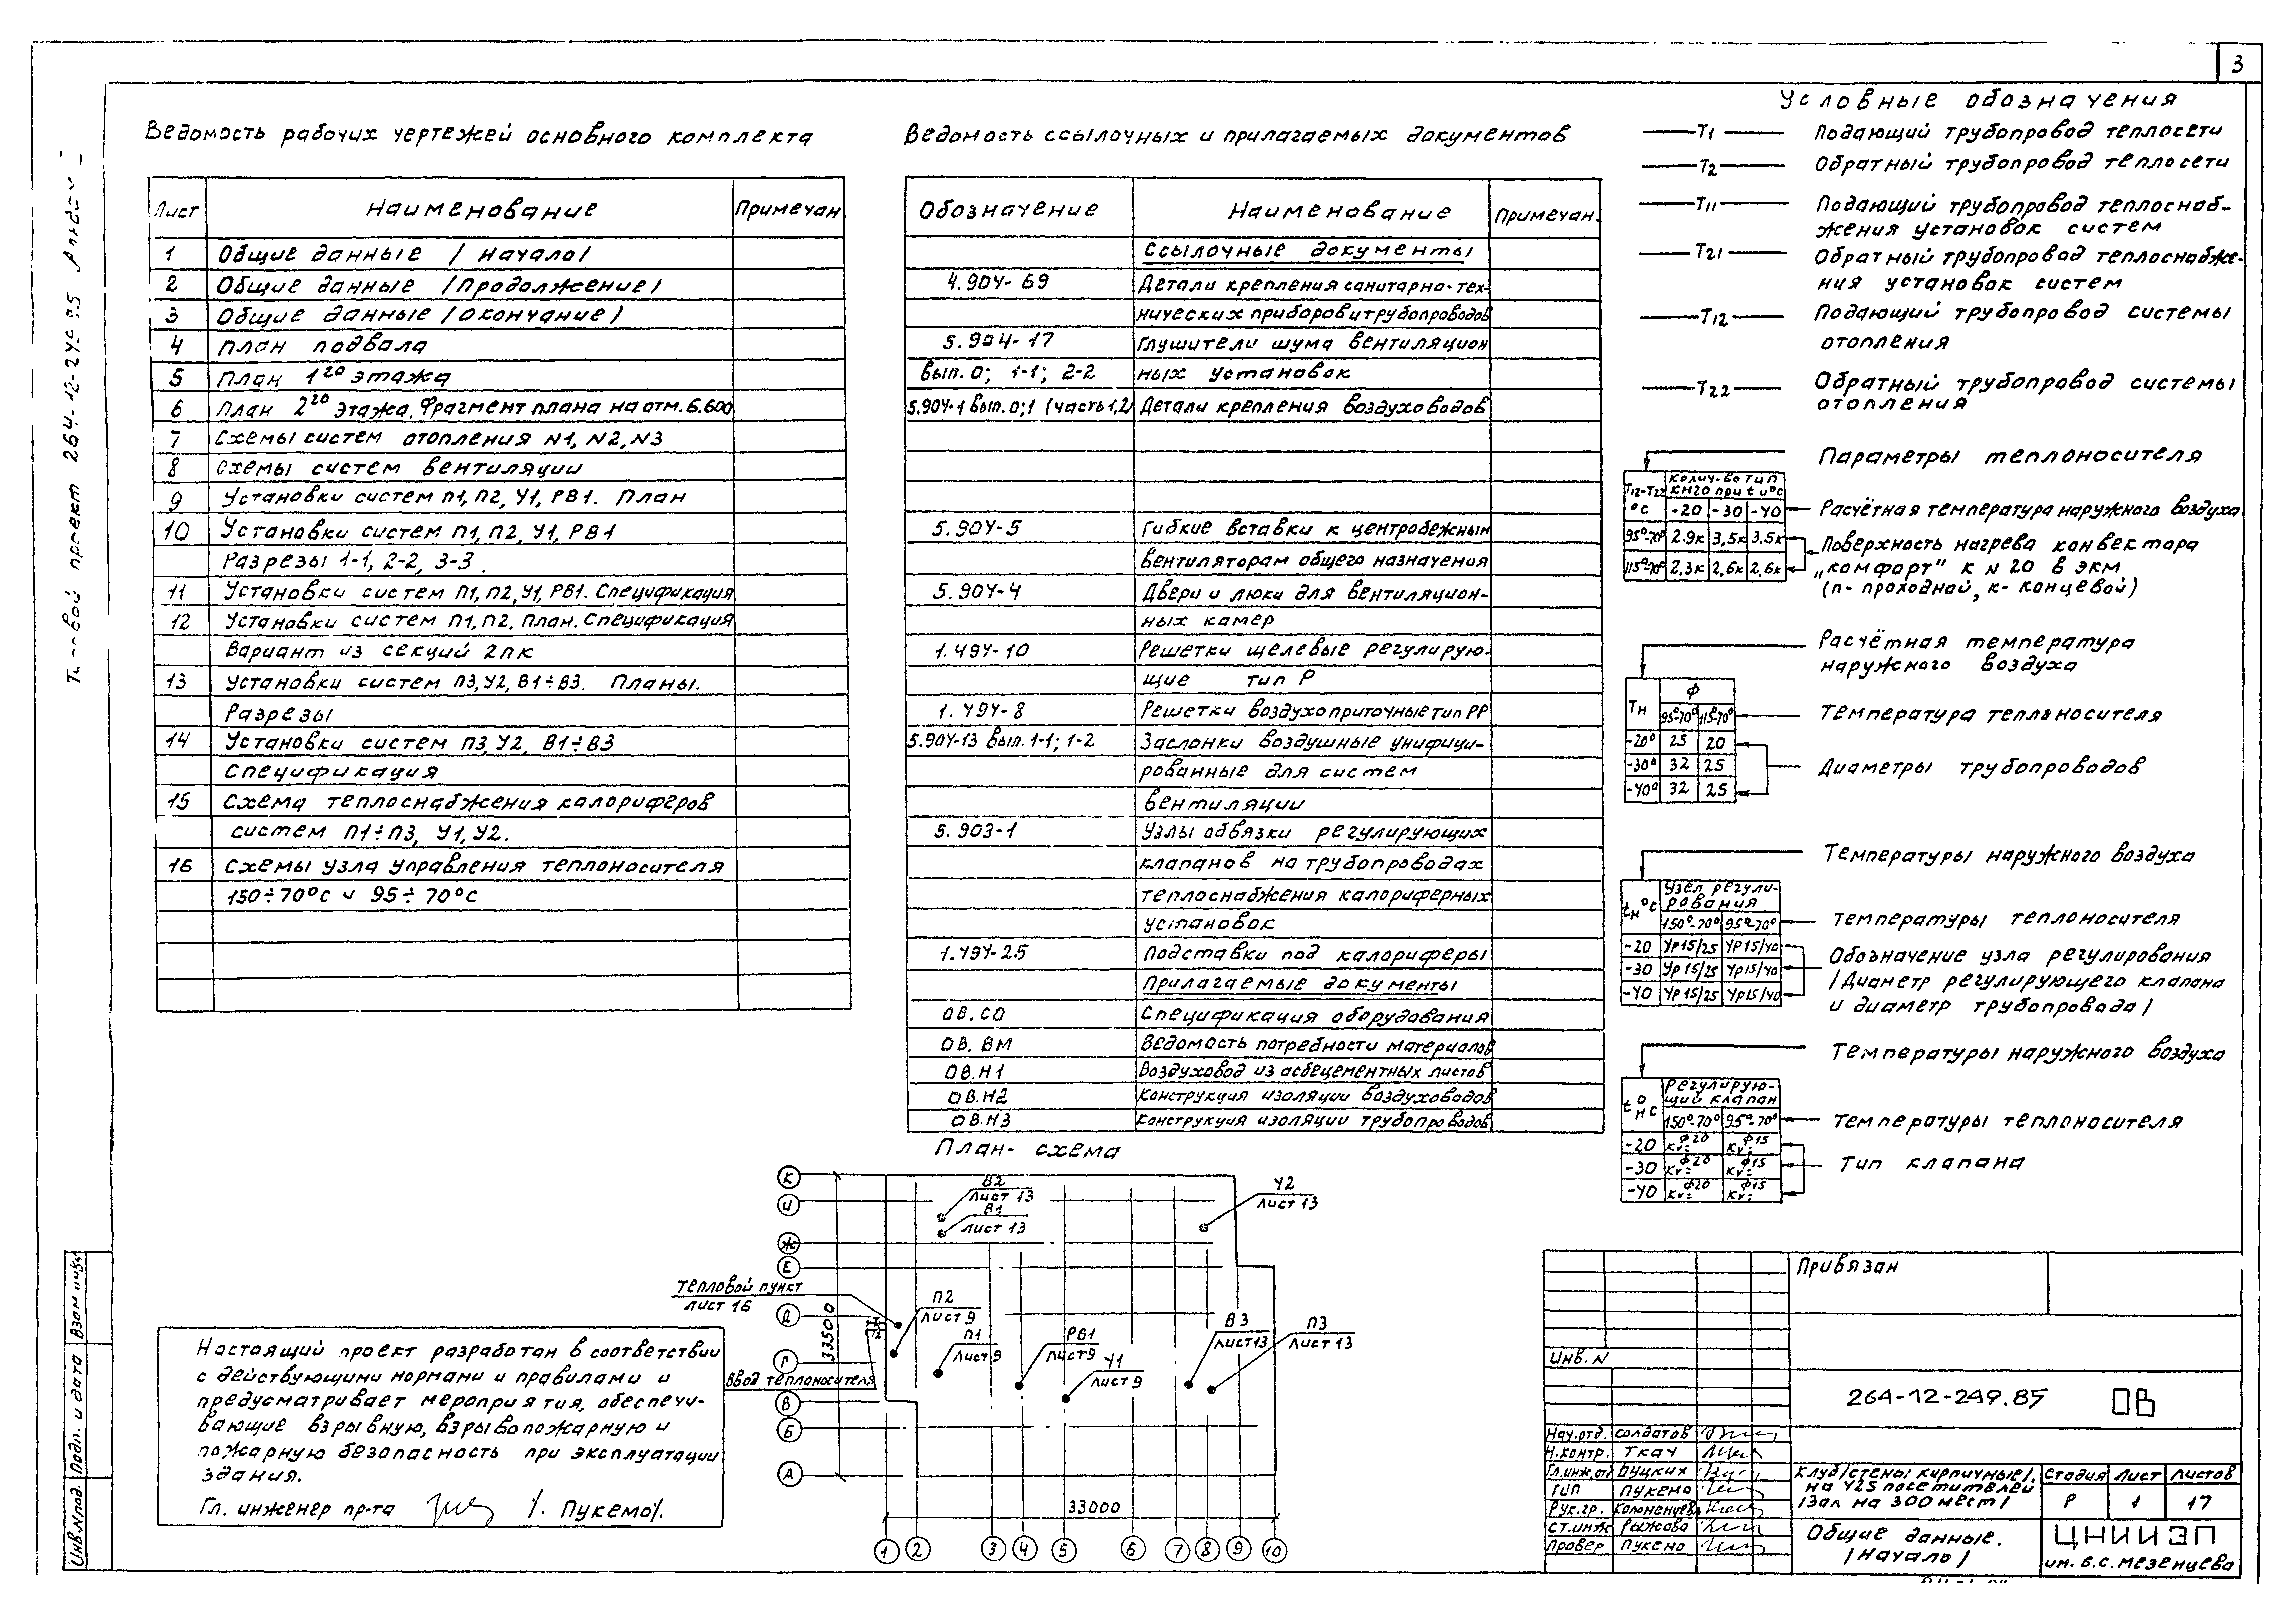 3
Ведомость рабочих чертежей основного комплекта
Лист Наименование Примечан
1 Общие данные /начало/
2 Общие данные /продолжение/
3 Общие данные /окончание/
4 План подвала
5 План 1го этажа
6 План 2го этажа. Фрагмент плана на отм. 6.600
7 Схемы систем отопления N1, N2, N3
8 Схемы систем вентиляции
9 Установки систем П1, П2, У1, РВ1. План
10 Установки систем П1, П2, У1, РВ1
Разрезы 1-1, 2-2, 3-3.
11 Установки систем П1, П2, У1, РВ1. Спецификация
12 Установки систем П1, П2. План. Спецификация
Вариант из секций 2ПК
13 Установки систем П3, У2, В1÷В3. Планы.
Разрезы
14 Установки систем П3, У2, В1÷В3
Спецификация
15 Схема теплоснабжения калориферов
систем П1÷П3, У1, У2.
16 Схемы узла управления теплоносителя
150÷70°С и 95÷70°С
Ведомость ссылочных и прилагаемых документов
Обозначение Наименование Примечан.
Ссылочные документы
4.904-69 Детали крепления санитарно-тех-
нических приборов и трубопроводов
5.904-17 Глушители шума вентиляцион
вып. 0; 1-1; 2-2 ных установок
5.904-1 вып. 0;1 (часть 1,2) Детали крепления воздуховодов
5.904-5 Гибкие вставки к центробежным
вентиляторам общего назначения
5.904-4 Двери и люки для вентиляцион-
ных камер
1.494-10 Решетки щелевые регулирую-
щие тип Р
1.494-8 Решетки воздухоприточные тип РР
5.904-13 вып. 1-1; 1-2 Заслонки воздушные унифици-
рованные для систем
вентиляции
5.903-1 Узлы обвязки регулирующих
клапанов на трубопроводах
теплоснабжения калориферных
установок
1.494-25 Подставки под калориферы
Прилагаемые документы
ОВ.СО Спецификация оборудования
ОВ.ВМ Ведомость потребности материалов
ОВ.Н1 Воздуховод из асбецементных листов
ОВ.Н2 Конструкция изоляции воздуховодов
ОВ.Н3 Конструкция изоляции трубопроводов
Условные обозначения
Т1 Подающий трубопровод теплосети
Т2 Обратный трубопровод теплосети
Т11 Подающий трубопровод теплоснаб-
жения установок систем
Т21 Обратный трубопровод теплоснабже-
ния установок систем
Т12 Подающий трубопровод системы
отопления
Т22 Обратный трубопровод системы
отопления
Параметры теплоносителя
Т12-Т22 Колич-во тип
КН20 при t н°С
°С -20 -30 -40 Расчётная температура наружного воздуха
95°-70° 2.9к 3,5к 3.5к Поверхность нагрева конвектора
„Комфорт" К N 20 в экм
115°-70° 2,3к 2,6к 2,6к (п- проходной, к- концевой)
Расчётная температура
наружного воздуха
Тн ф
95°-70° 115°-70° Температура теплоносителя
-20° 25 20
-30° 32 25 Диаметры трубопроводов
-40° 32 25
Температуры наружного воздуха
tн°С Узел регули-
рования
150°-70° 95°-70° Температуры теплоносителя
-20 УР15/25 УР15/40 Обозначение узла регулирования
-30 УР15/25 УР15/40 /Диаметр регулирующего клапана
-40 УР15/25 УР15/40 и диаметр трубопровода/
Температуры наружного воздуха
tн°С Регулирую-
щий клапан
150°-70° 95°-70° Температуры теплоносителя
-20 ф20 Kv= ф15 Kv=
-30 ф20 Kv= ф15 Kv= Тип клапана
-40 ф20 Kv= ф15 Kv=
План-схема
К
И
Ж
Е
Д
Г
В
Б
А
В2
Лист 13
В1
Лист 13
У2
Лист 13
Тепловой пункт
лист 16
П2
Лист 9
П1
Лист 9
РВ1
Лист 9
У1
Лист 9
В3
Лист 13
П3
Лист 13
Ввод теплоносителя
33500
33000
1 2 3 4 5 6 7 8 9 10
Настоящий проект разработан в соответствии
с действующими нормами и правилами и
предусматривает мероприятия, обеспечи-
вающие взрывную, взрывопожарную и
пожарную безопасность при эксплуатации
здания.
Гл. инженер пр-та /. Пукемо/.
Типовой проект 264-12-249.85 Альбом
Взам инв
Подп. и дата
Инв.N подл.
Привязан
Инв. N
264-12-249.85 ОВ
Нач.отд. Солдатов
Н.контр. Ткач
Гл.инж.отд Буцких
ГИП Пукемо
Рук.гр.
Ст.инж Рыжова
Провер Пукемо
Клуб/стены кирпичные/.
на 425 посетителей
/Зал на 300 мест/
Стадия Лист Листов
Р 1 17
Общие данные.
/Начало/
ЦНИИЭП
им. Б.С. Мезенцева